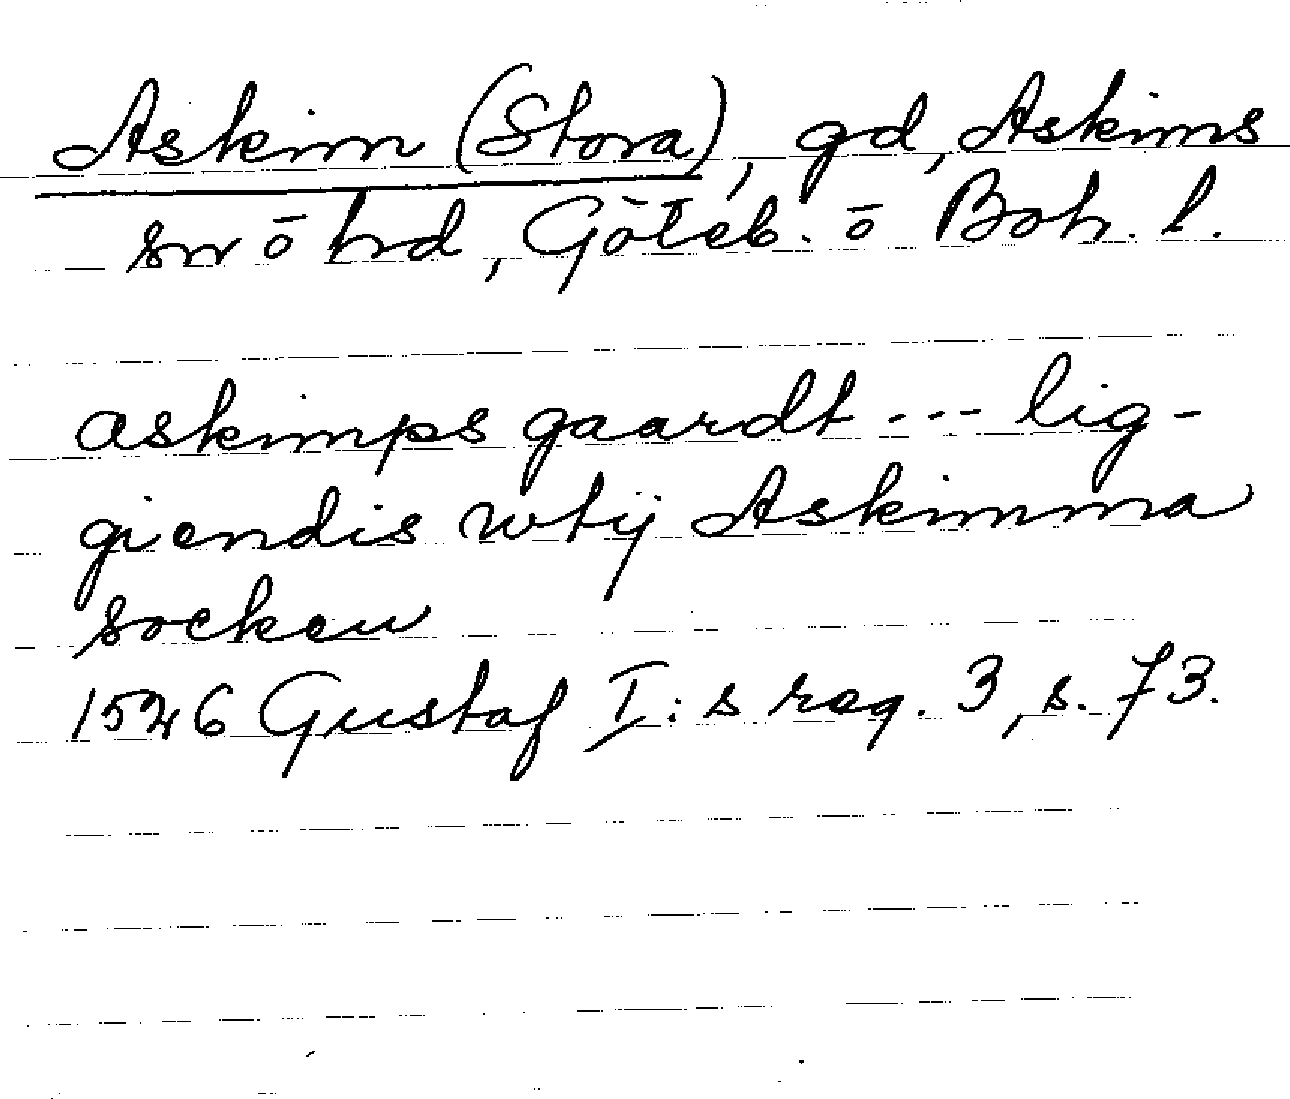 Askim (Stora), gd, Askims
sn ō hd, Göteb. ō Boh. l.
askimps gaardt --- lig-
giendis wtij Askimma
socken
1526 Gustaf I:s reg. 3, s. 73.